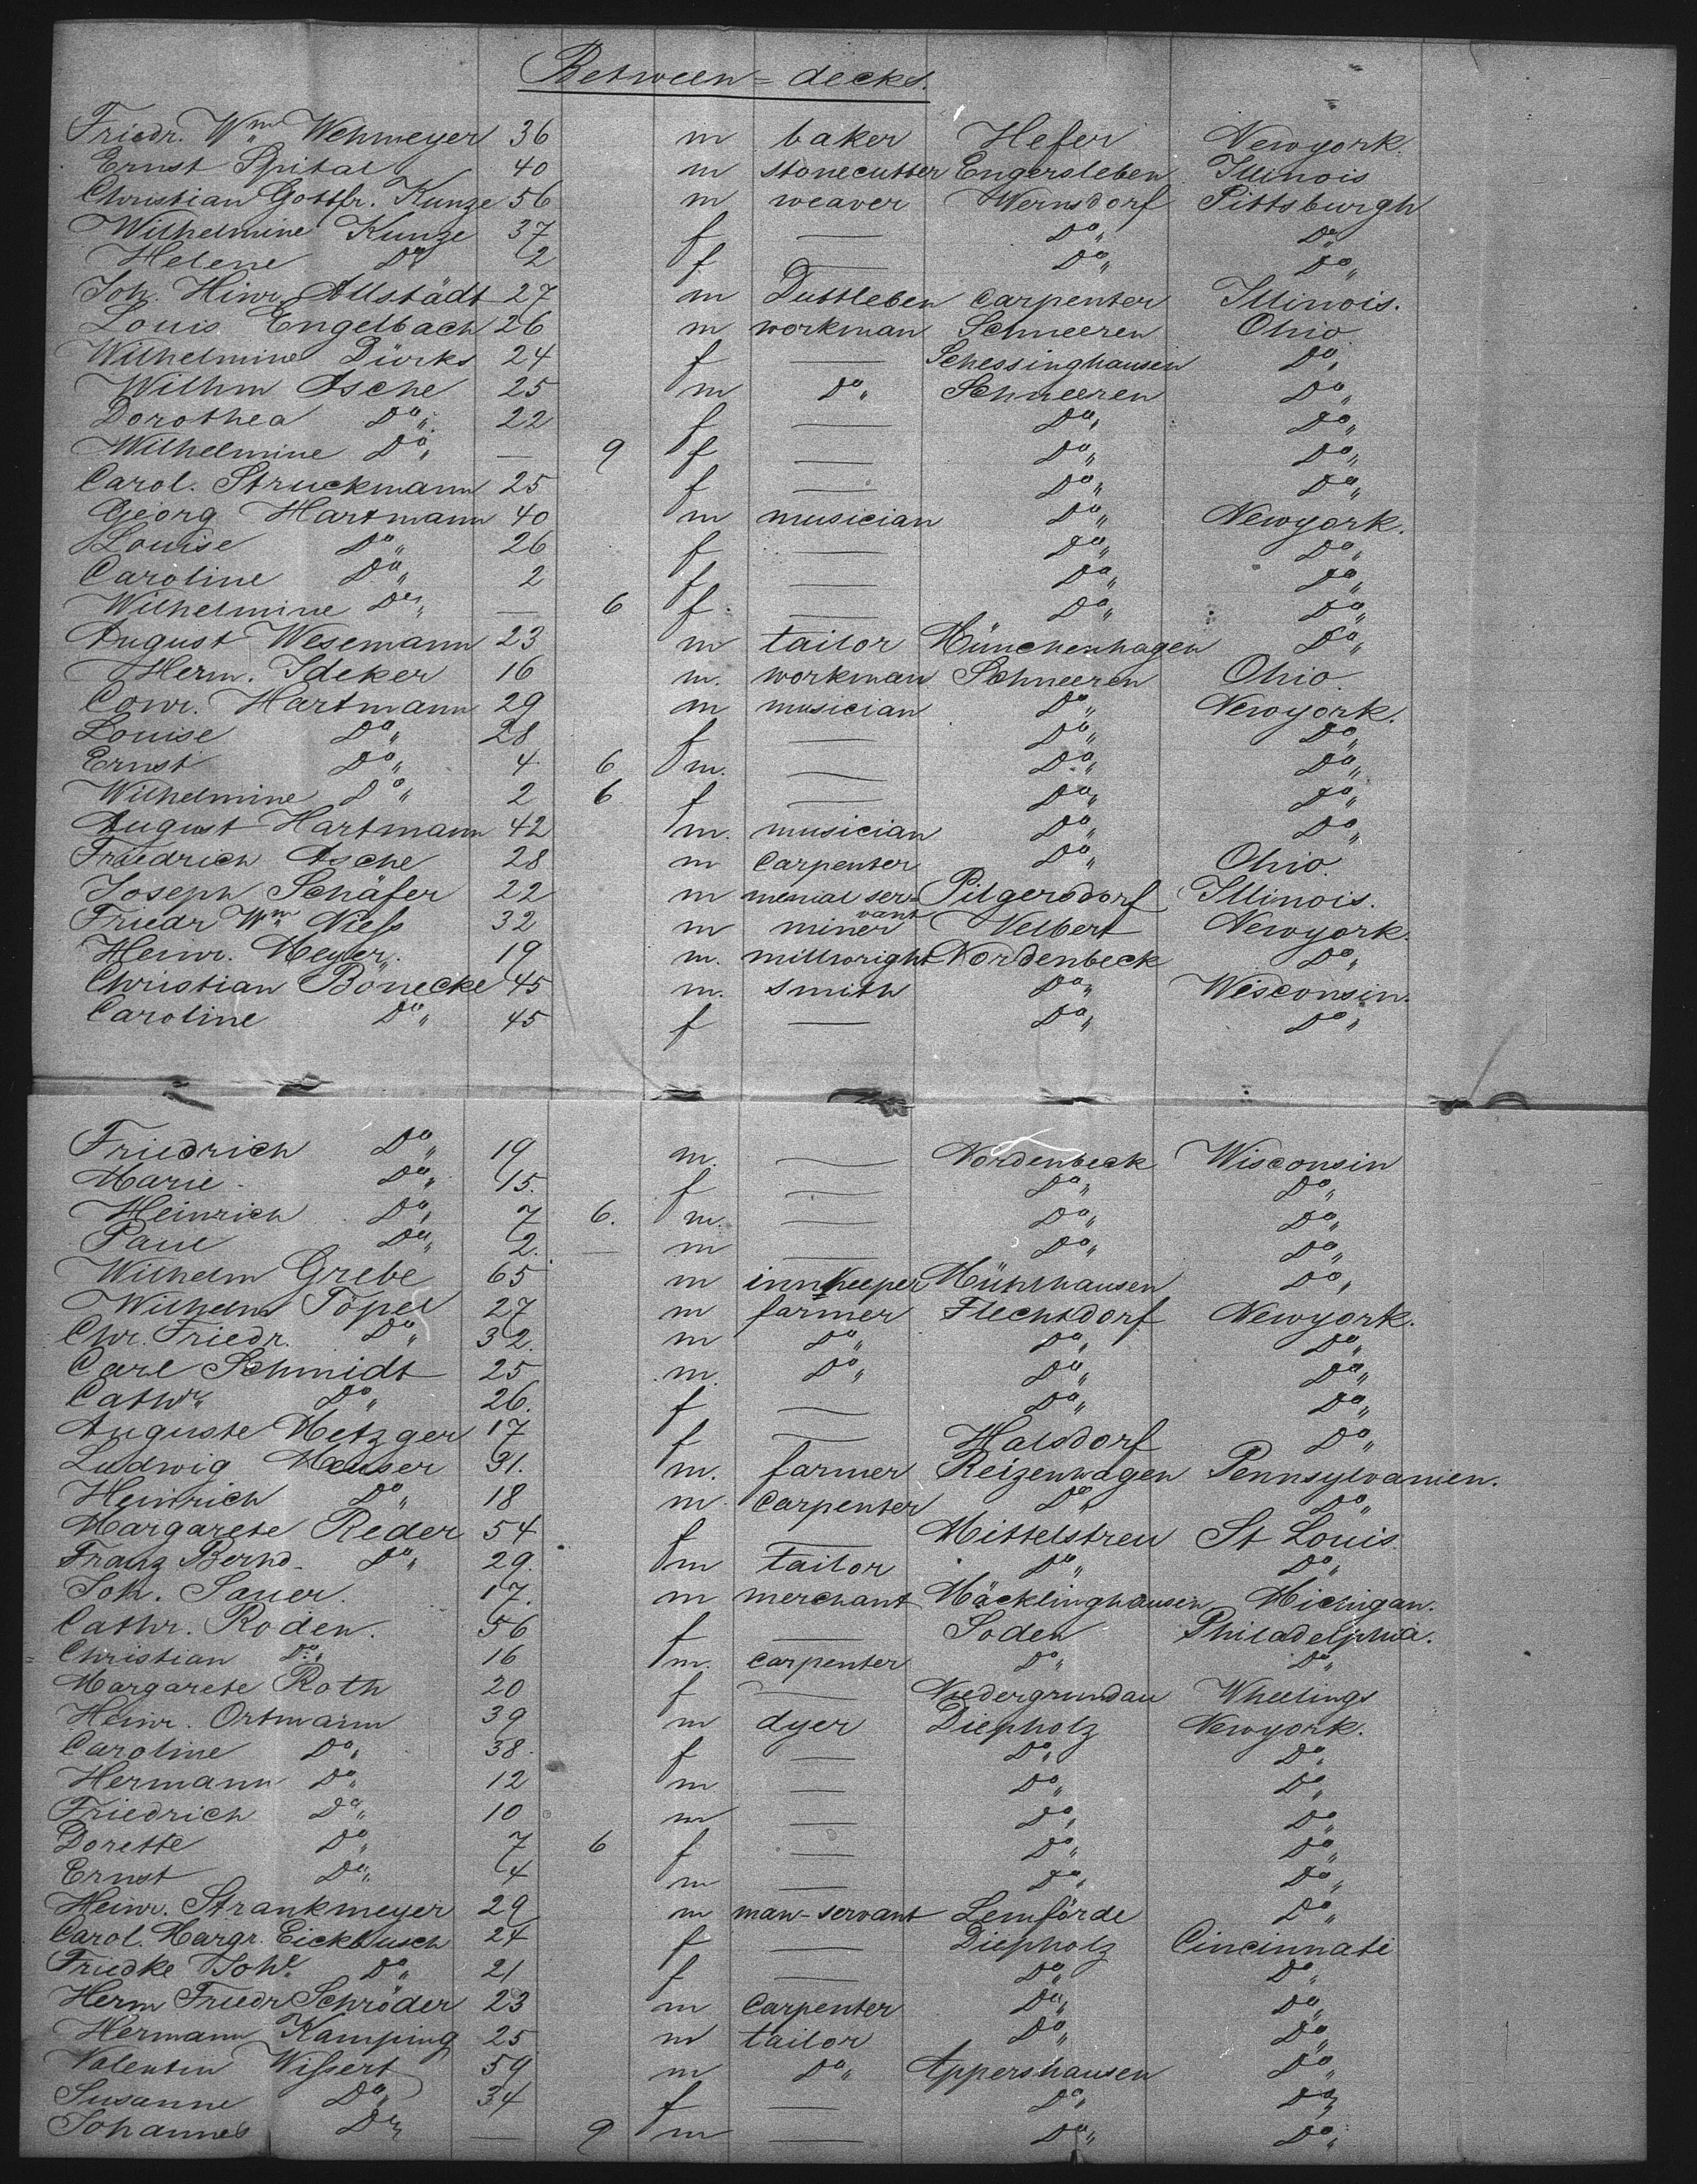 Between=decks.
Friedr. Wm Wehmeyer 36 m baker Hefer Newyork.
Ernst Spital 40 m stonecutter Engersleben Illinois
Christian Gottfr. Kunze 56 m weaver Wernsdorf Pittsburgh
Wilhelmine Kunze 37 f — Do„ Do„
Helene Do„ 2 f — Do„ Do„
Joh. Hinr. Allstädt 27 m Duttleben Carpenter Illinois.
Louis Engelbach 26 m workman Schneeren Ohio
Wilhelmine Dürks 24 f — Schessinghausen Do„
Wilhm Asche 25 m Do„ Schneeren Do„
Dorothea Do„ 22 f — Do„ Do„
Wilhelmine Do„ — 9 f — Do„ Do„
Carol. Struckmann 25 f — Do„ Do„
Georg Hartmann 40 m musician Do„ Newyork.
Louise Do„ 26 f — Do„ Do„
Caroline Do„ 2 f — Do„ Do„
Wilhelmine Do„ — 6 f — Do„ Do„
August Wesemann 23 m tailor Münchenhagen Do„
Herm. Ideker 16 m. workman Schneeren Ohio
Conr. Hartmann 29 m musician Do„ Newyork.
Louise Do„ 28 f — Do„ Do„
Ernst Do„ 4 6 m. — Do„ Do„
Wilhelmine Do„ 2 6 f — Do„ Do„
August Hartmann 42 m. musician Do„ Do„
Friedrich Asche 28 m Carpenter Do„ Ohio.
Joseph Schäfer 22 m menial ser= Pilgersdorf Illinois.
vant
Friedr Wm Niess 32 m miner Velbert Newyork.
Heinr. Meyer. 19 m. millwright Nordenbeck Do„
Christian Bönecke 45 m. smith Do„ Wisconsin.
Caroline Do„ 45 f — Do„ Do„
Friedrich Do„ 19 m. — Nordenbeck Wisconsin
Marie Do„ 15. f — Do„ Do„
Heinrich Do„ 7 6. m. — Do„ Do„
Paul Do„ 2. — m — Do„ Do„
Wilhelm Grebe 65 m innkeeper Mühlhausen Do„
Wilhelm Töpel 27 m farmer Flechtdorf Newyork.
Chr. Friedr. Do„ 32. m Do„ Do„ Do„
Carl Schmidt 25 m. Do„ Do„ Do„
Cathr„ Do„ 26. f — Do„ Do„
Auguste Metzger 17 f — Halsdorf Do„
Ludwig Mauser 31. m. farmer Reizenhagen Pennsylvanien.
Heinrich Do„ 18 m Carpenter Do„ Do„
Margarete Reder 54 f — Mittelstreu St Louis
Franz Bernd. Do„ 29. m tailor Do„ Do„
Joh. Sauer. 17. m merchant Mäcklinghausen Michigan.
Cathr. Roden. 56 f — Soden Philadelphia.
Christian Do„ 16 m. Carpenter Do„ Do„
Margarete Roth 20 f — Niedergrundau Wheelings
Heinr. Ortmann 39 m dyer Diepholz Newyork.
Caroline Do„ 38. f — Do„ Do„
Hermann Do„ 12 m — Do„ Do„
Friedrich Do„ 10 m — Do„ Do„
Dorette Do„ 7 6 f — Do„ Do„
Ernst Do„ 4 m — Do„ Do„
Heinr. Strankmeyer 29 m man-servant Lemförde Do„
Carol. Margr. Eickbusch 24 f — Diepholz Cincinnati
Friedke Do„ 21 f — Do„ Do„
Herm Friedr Schröder 23 m Carpenter Do„ Do„
Hermann Kamping 25 m tailor Do„ Do„
Valentin Wissert 59 m Do„ Appershausen Do„
Susanne Do„ 34 f — Do„ Do„
Johannes Do„ — 9 m — Do„ Do„